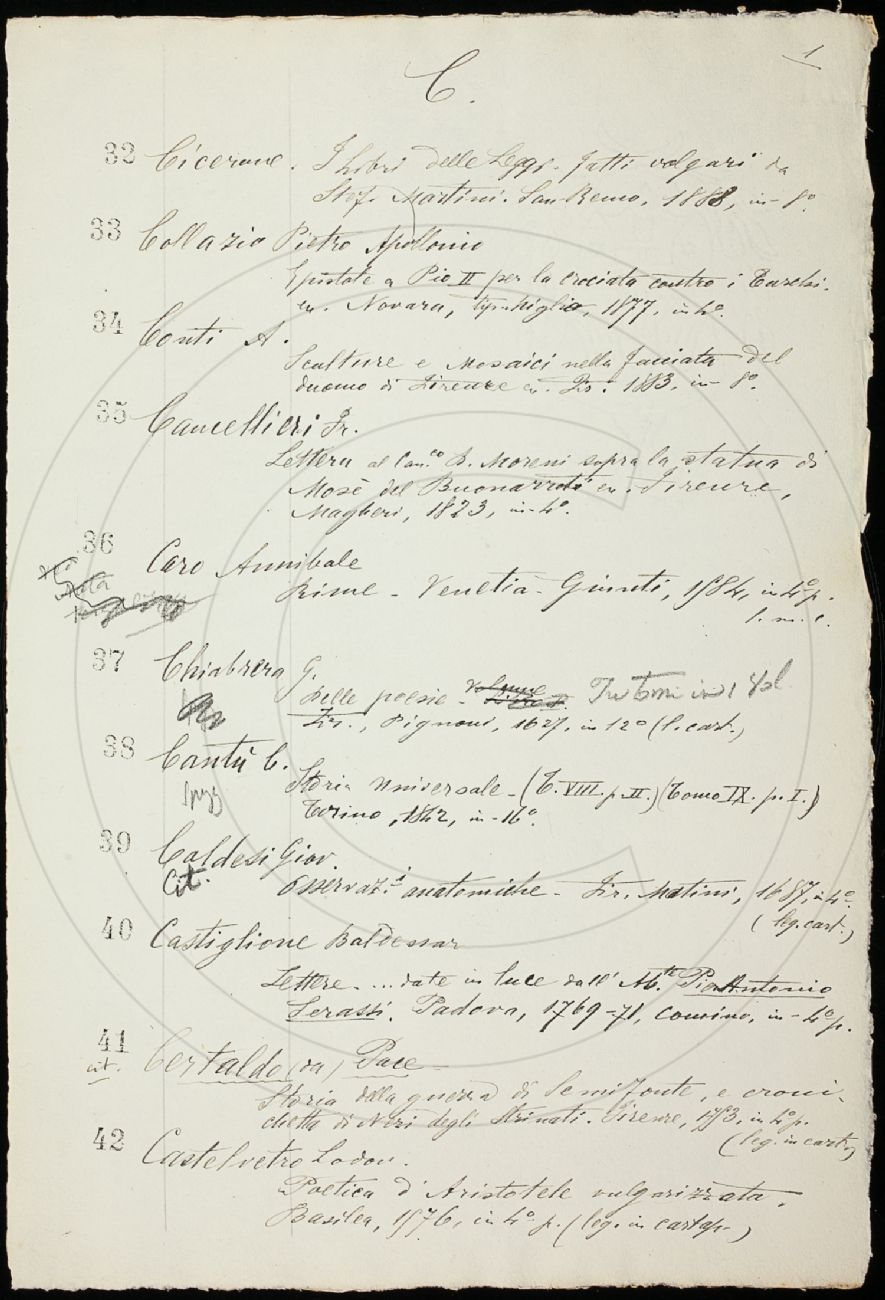 1
C.
32 Cicerone. I Libri delle Leggi. fatti volgari da
Stef. Martini. San Remo, 1888, in-8º.
33 Collazio Pietro Apollonio
Epistole a Pio II per la crociata contro i Turchi.
Novara, tip. Miglio, 1877, in 4º.
34 Conti A.
Sculture e Mosaici nella facciata del
duomo di Firenze Fir. 1883, in-8º.
35 Cancellieri Fr.
Lettera al Can.co D. Moreni sopra la statua di
Mosè del Buonarroti Firenze,
Magheri, 1823, in-4º.
36
Caro Annibale
Rime - Venetia - Giunti, 1584, in 4º p.
l. m. c.
37 Chiabrera G.
Delle poesie - Volume Tre Tomi in 1 Vol
Fir., Pignoni, 1627, in 12º (l. cart.)
38 Cantù C.
Storia Universale - (T. VIII. p. II.) (Tomo IX. p. I.)
Torino, 1842, in-16º.
39 Caldesi Giov.
Cit. Osservaz.i anatomiche - Fir. Matini, 1687, in 4º.
(leg. cart.)
40 Castiglione Baldessar
Lettere. ... date in luce dall' Ab.te Pierantonio
Serassi. Padova, 1769-71, Comino, in-4º p.
41
cit. Certaldo (da) Pace -
Storia della guerra di Semifonte, e croni-
chetta di Neri degli Strinati. Firenze, 1753, in 4º p.
(leg. in cart.)
42 Castelvetro Lodov.
Poetica d'Aristotele vulgarizzata.
Basilea, 1576, in 4º p. (leg. in cartap.)